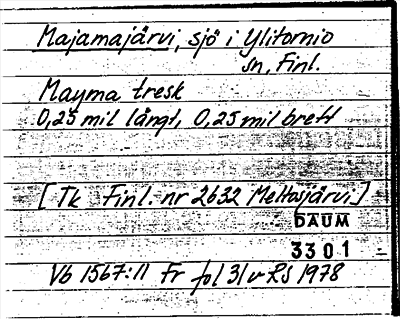 Majamajärvi, sjö i Ylitornio
sn, Finl.
Mayma tresk
0,25 mil långt, 0,25 mil brett
[Tk Finl. nr 2632 Meltosjärvi]
DAUM
3301
Vb 1567:11 Fr fol 31v RS 1978